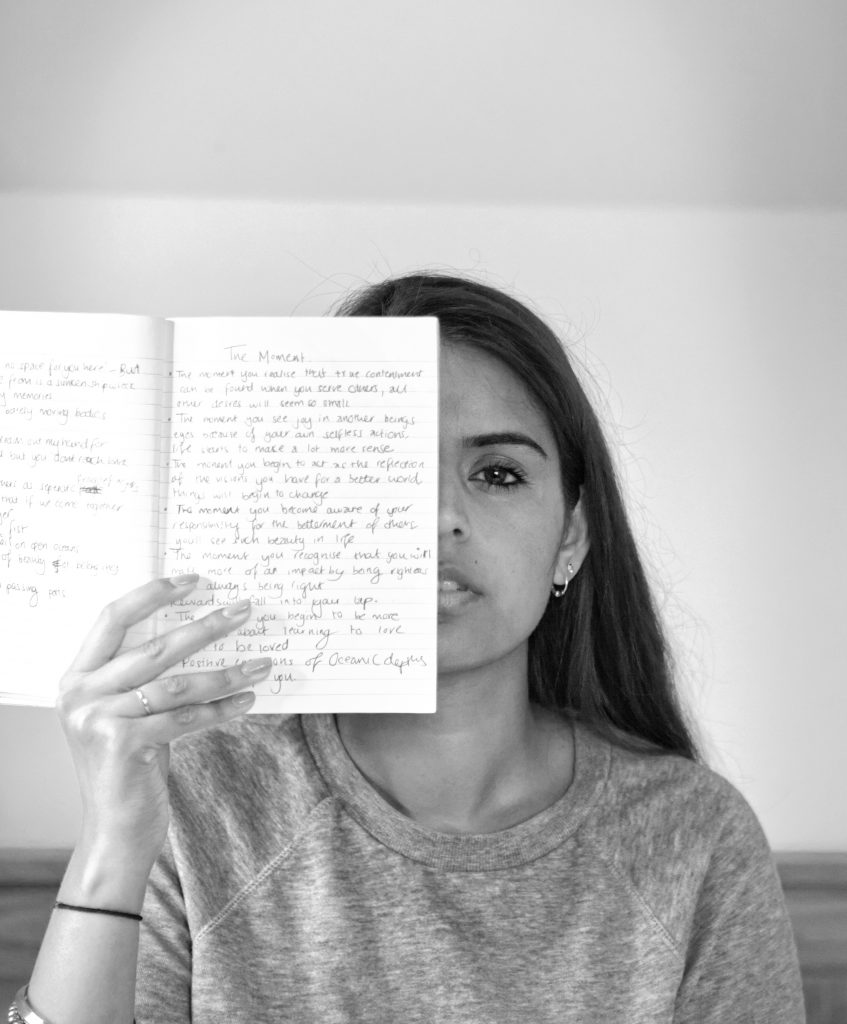 no space for you here" - But
is a sunken shipwreck
memories
barely moving bodies
out my hand for
but you dont
as separate
that if we come together
fist
open oceans
of beauty
passing
The Moment.
• The moment you realise that true contentment
can be found when you serve others, all
other desires will seem so small
• The moment you see joy in another beings
eyes because of your own selfless actions,
life starts to make a lot more sense
• The moment you begin to act as the reflection
of the visions you have for a better world
things will begin to change
• The moment you become aware of your
responsibility for the betterment of others
you'll see such beauty in life
• The moment you recognise that you will
more of an impact by being righteous
always being right
Rewards fall into your lap.
• The you begin to be more
about learning to love
to be loved
Positive of Oceanic depths
you.